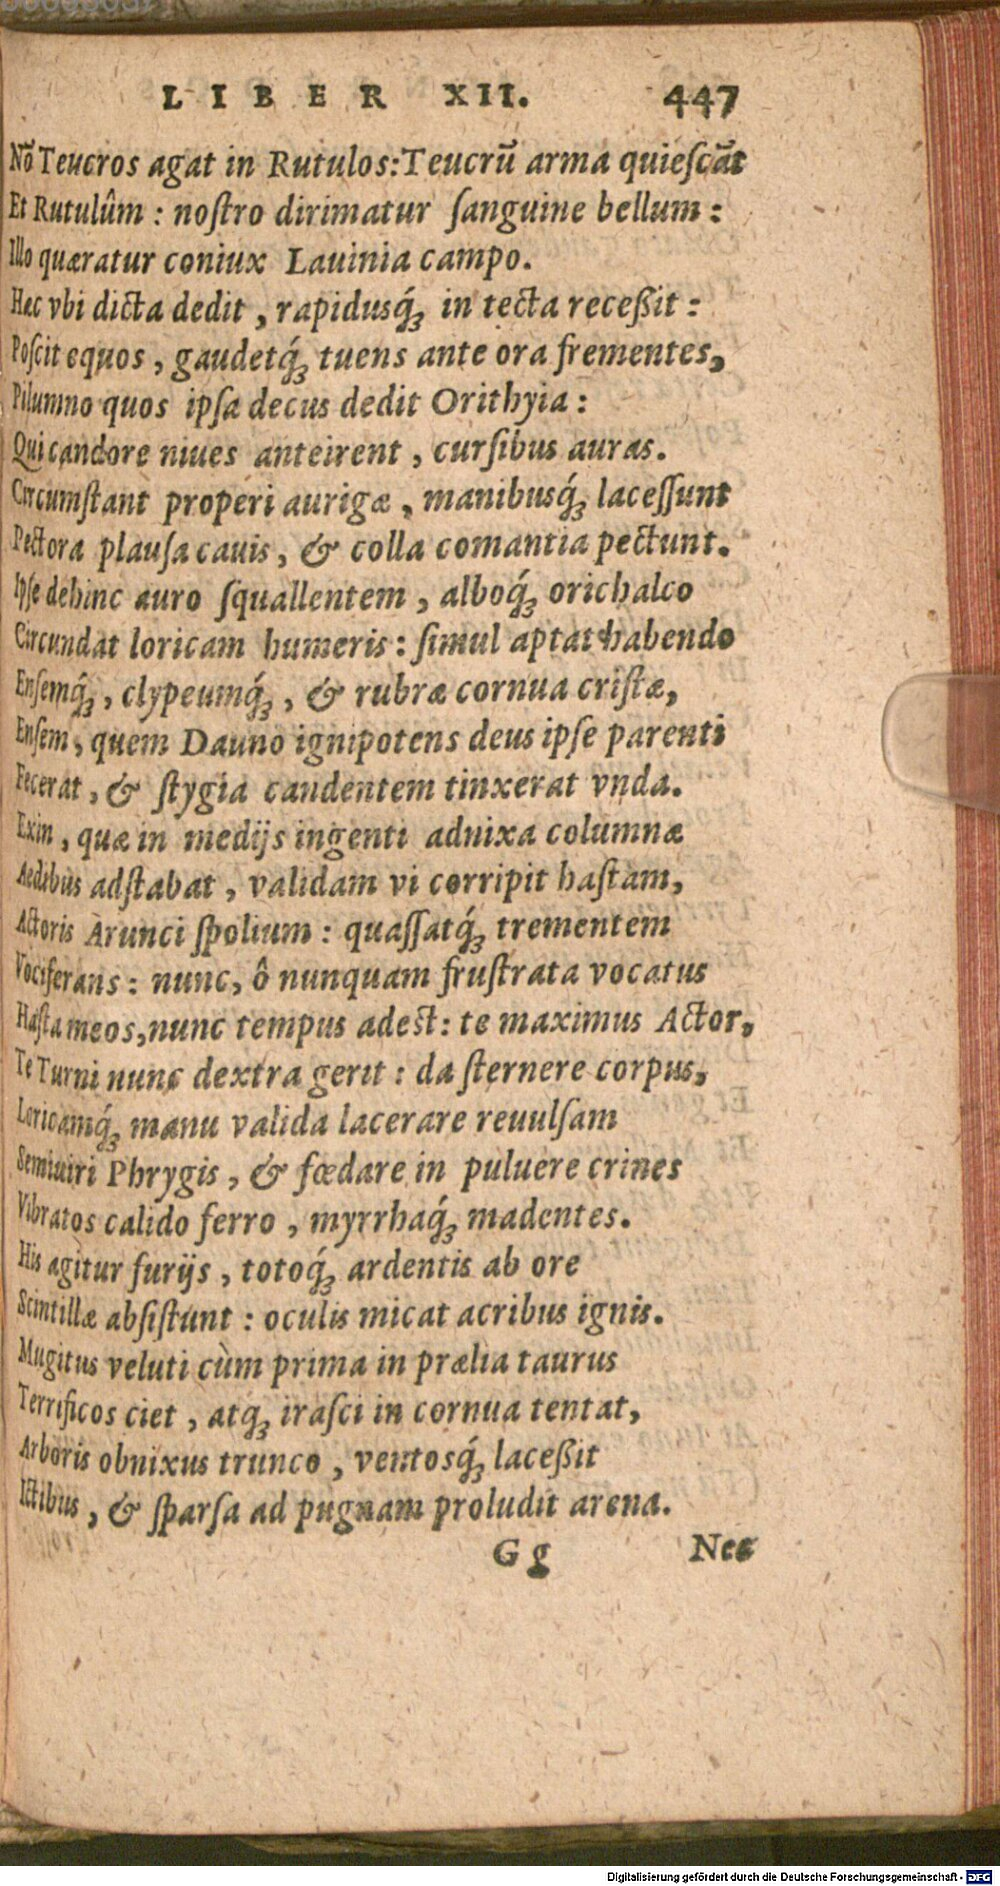 LIBER XII. 447
Nō Teucros agat in Rutulos: Teucrū arma quieſcāt
Et Rutulûm : noſtro dirimatur ſanguine bellum :
Illo quæratur coniux Lauinia campo.
Hæc vbi dicta dedit , rapidusq́ꝫ in tecta receßit :
Poſcit equos , gaudetq́ꝫ tuens ante ora frementes,
Pilumno quos ipſa decus dedit Orithyia :
Qui candore niues anteirent , curſibus auras.
Circumſtant properi aurigæ , manibusq́ꝫ laceſſunt
Pectora plauſa cauis , & colla comantia pectunt.
Ipſe dehinc auro ſquallentem , alboq́ꝫ orichalco
Circundat loricam humeris : ſimul aptat habendo
Enſemq́ꝫ , clypeumq́ꝫ , & rubræ cornua criſtæ,
Enſem, quem Dauno ignipotens deus ipſe parenti
Fecerat , & ſtygia candentem tinxerat vnda.
Exin , quæ in medijs ingenti adnixa columnæ
Aedibus adſtabat , validam vi corripit haſtam,
Actoris Arunci ſpolium : quaſſatq́ꝫ trementem
Vociferans : nunc, ô nunquam fruſtrata vocatus
Haſta meos, nunc tempus adest : te maximus Actor,
Te Turni nunc dextra gerit : da ſternere corpus,
Loricamq́ꝫ manu valida lacerare reuulſam
Semiuiri Phrygis , & fœdare in puluere crines
Vibratos calido ferro , myrrhaq́ꝫ madentes.
His agitur furijs , totoq́ꝫ ardentis ab ore
Scintillæ abſiſtunt : oculis micat acribus ignis.
Mugitus veluti cùm prima in prælia taurus
Terrificos ciet , atqꝫ iraſci in cornua tentat,
Arboris obnixus trunco , ventosq́ꝫ laceßit
Ictibus , & ſparſa ad pugnam proludit arena.
Gg Nec
Digitalisierung gefördert durch die Deutsche Forschungsgemeinschaft - DFG